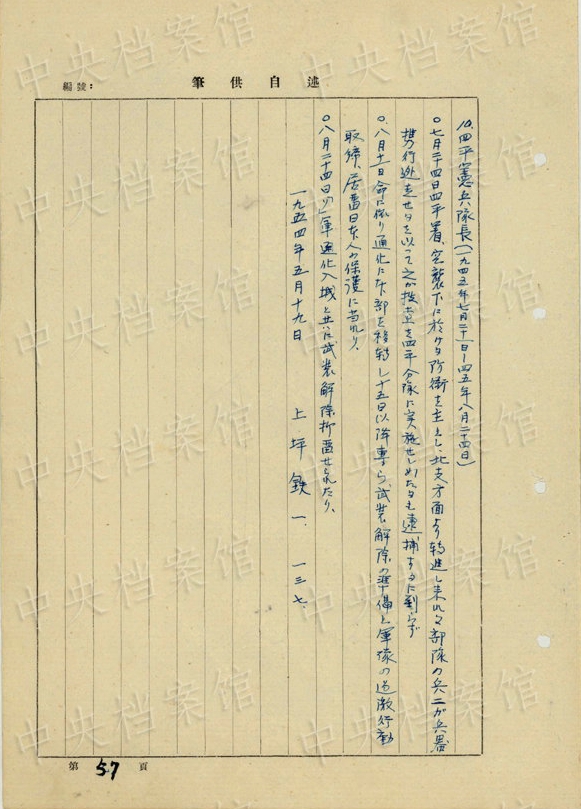 編號：
筆供自述
10.四平憲兵隊長(一九四五年七月二十一日—四五年八月二十四日)
○七月二十四日四平着、空襲下に於ける防衛を主とし、北支方面より轉進し来れる部隊の兵二が兵器
携行逃走せるを以って之が捜査を四平分隊に実施せしめたるも逮捕するに到らず
○八月十一日命に依り通化に本部を移轉し十五日以降専ら武装解除の準備と軍隊の過激行動
取締、居留日本人の保護に当れり、
○八月二十四日「ソ」軍通化入城と共に武装解除抑留せられたり、
一九五四年五月十九日 上坪鉄一、一三七、
第 57 頁
中央档案馆